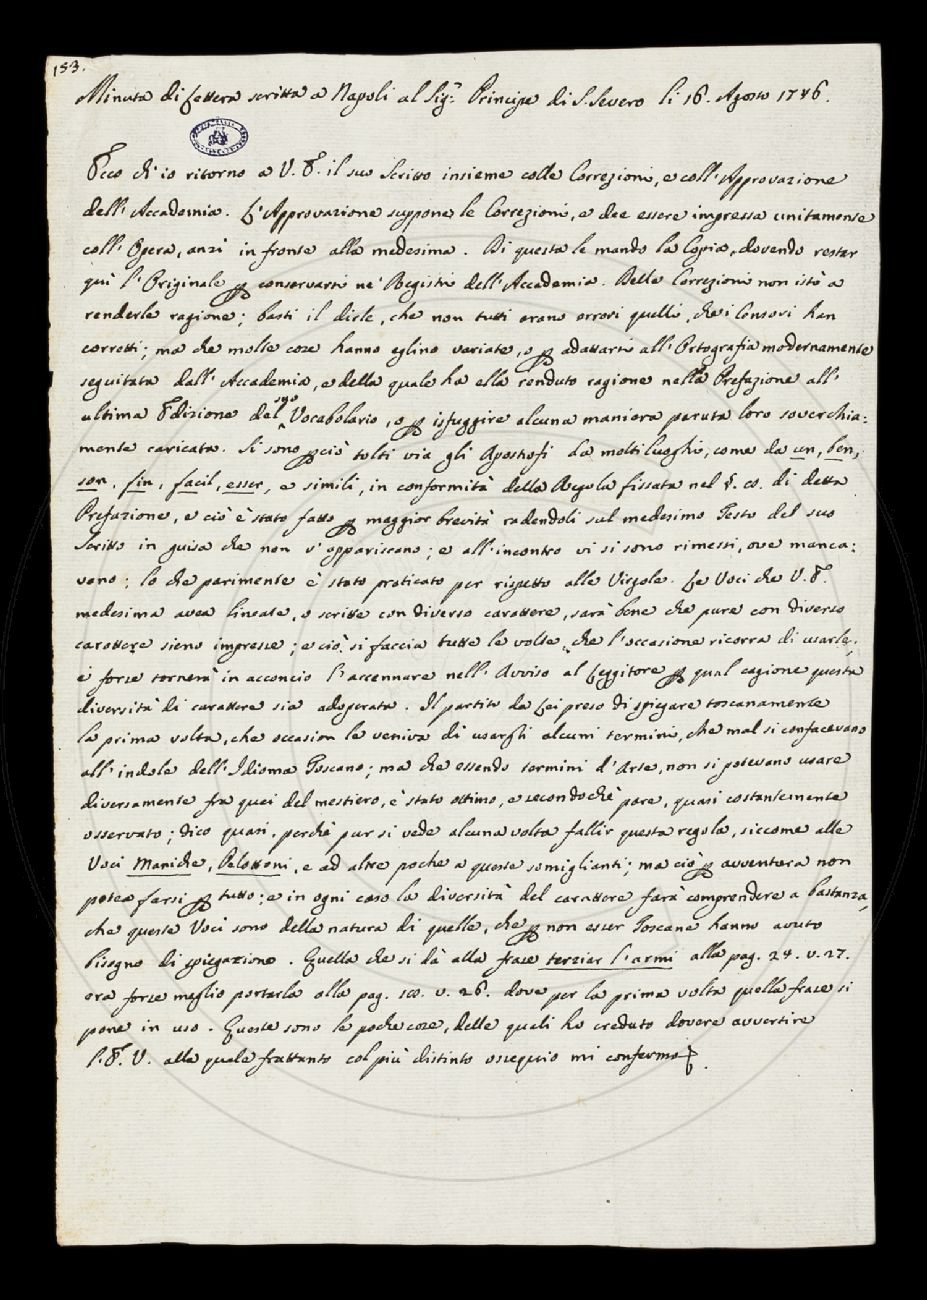 153.
Minuta di Lettera scritta a Napoli al Sig.r Principe di S. Severo li 16. Agosto 1746.
Ecco ch'io ritorno a V. E. il suo Scritto insieme colle Correzioni, e coll'Approvazione
dell'Accademia. L'Approvazione suppone le Correzioni, e dee essere impressa unitamente
coll'Opera, anzi in fronte alla medesima. Di questa le mando la Copia, dovendo restar
quì l'Originale per conservarsi ne' Registri dell'Accademia. Delle Correzioni non istò a
renderle ragione; basti il dirle, che non tutti erano errori quelli, che i Censori han
corretti; ma che molte cose hanno eglino variate, o per adattarsi all'Ortografia modernamente
seguitata dall'Accademia, e della quale ha ella renduto ragione nella Prefazione all'
ultima Edizione del suo Vocabolario, o per isfuggire alcuna maniera paruta loro soverchia:
mente caricata. Si sono perciò tolti via gli Apostrofi da molti luoghi, come da un, ben,
son, fin, facil, esser, e simili, in conformità della Regola fissata nel §. 10. di detta
Prefazione, e ciò è stato fatto per maggior brevità radendoli sul medesimo Testo del suo
Scritto in guisa che non v'appariscano; e all'incontro vi si sono rimessi, ove manca:
vano; lo che parimente è stato praticato per rispetto alle Virgole. Le Voci che V. E.
medesima avea lineate, o scritte con diverso carattere, sarà bene che pure con diverso
carattere sieno impresse; e ciò si faccia tutte le volte, che l'occasione ricorra di usarle;
e forse tornerà in acconcio l'accennare nell'Avviso al Leggitore per qual cagione questa
diversità di carattere sia adoperata. Il partito da Lei preso di spiegare toscanamente
la prima volta, che occasion le veniva di usargli alcuni termini, che mal si confacevano
all'indole dell'Idioma Toscano; ma che essendo termini d'Arte, non si potevano usare
diversamente fra quei del mestiero, è stato ottimo, e secondochè pare, quasi costantemente
osservato; dico quasi, perchè pur si vede alcuna volta fallir questa regola, siccome alle
Voci Maniche, Pelottoni, e ad altre poche a queste somiglianti; ma ciò per avventura non
potea farsi per tutto; e in ogni caso la diversità del carattere farà comprendere a bastanza,
che queste Voci sono della natura di quelle, che per non esser Toscane hanno avuto
bisogno di spiegazione. Quella che si dà alla frase terzier l'armi alla pag. 24. v. 27.
era forse meglio portarla alla pag. v. 26. dove per la prima volta quella frase si
pone in uso. Queste sono le poche cose, delle quali ho creduto dovere avvertire
l'E. V. alla quale frattanto col più distinto ossequio mi confermo.